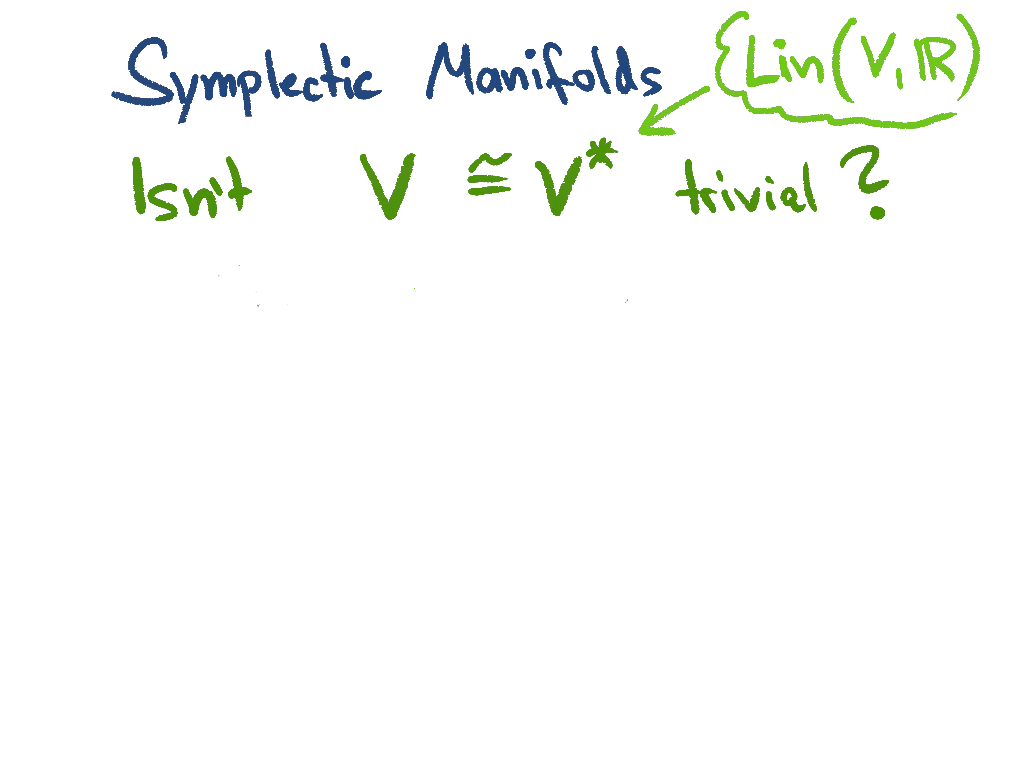 Symplectic Manifolds
{Lin(V, ℝ)
Isn't V ≅ V* trivial?